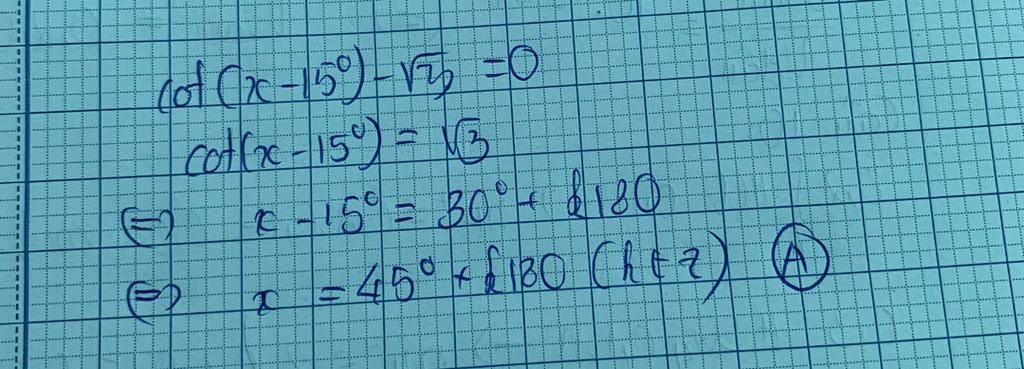 cot(x-15°)-√3 =0
cot(x-15°)= √3
⇔ x-15°= 30°+ k180
⇔ x =45°+k180 (k∈Z) Ⓐ